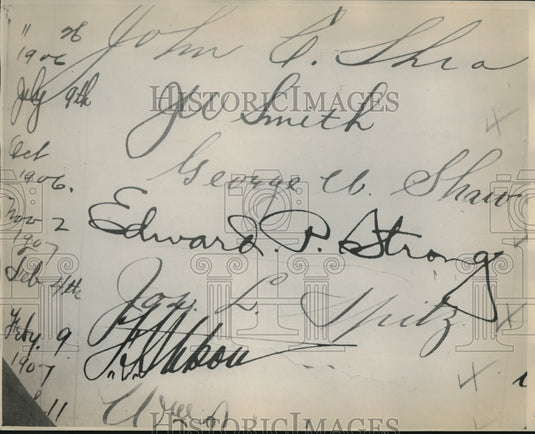 " 28
1906 John C. Shea
July 9th JW Smith
Oct
1906. George W. Shaw
Nov 2
1907 Edward P. Strong
Feb 4th Jas. L. Spitz
Feby. 9
1907
11
HISTORICIMAGES
HISTORICIMAGES